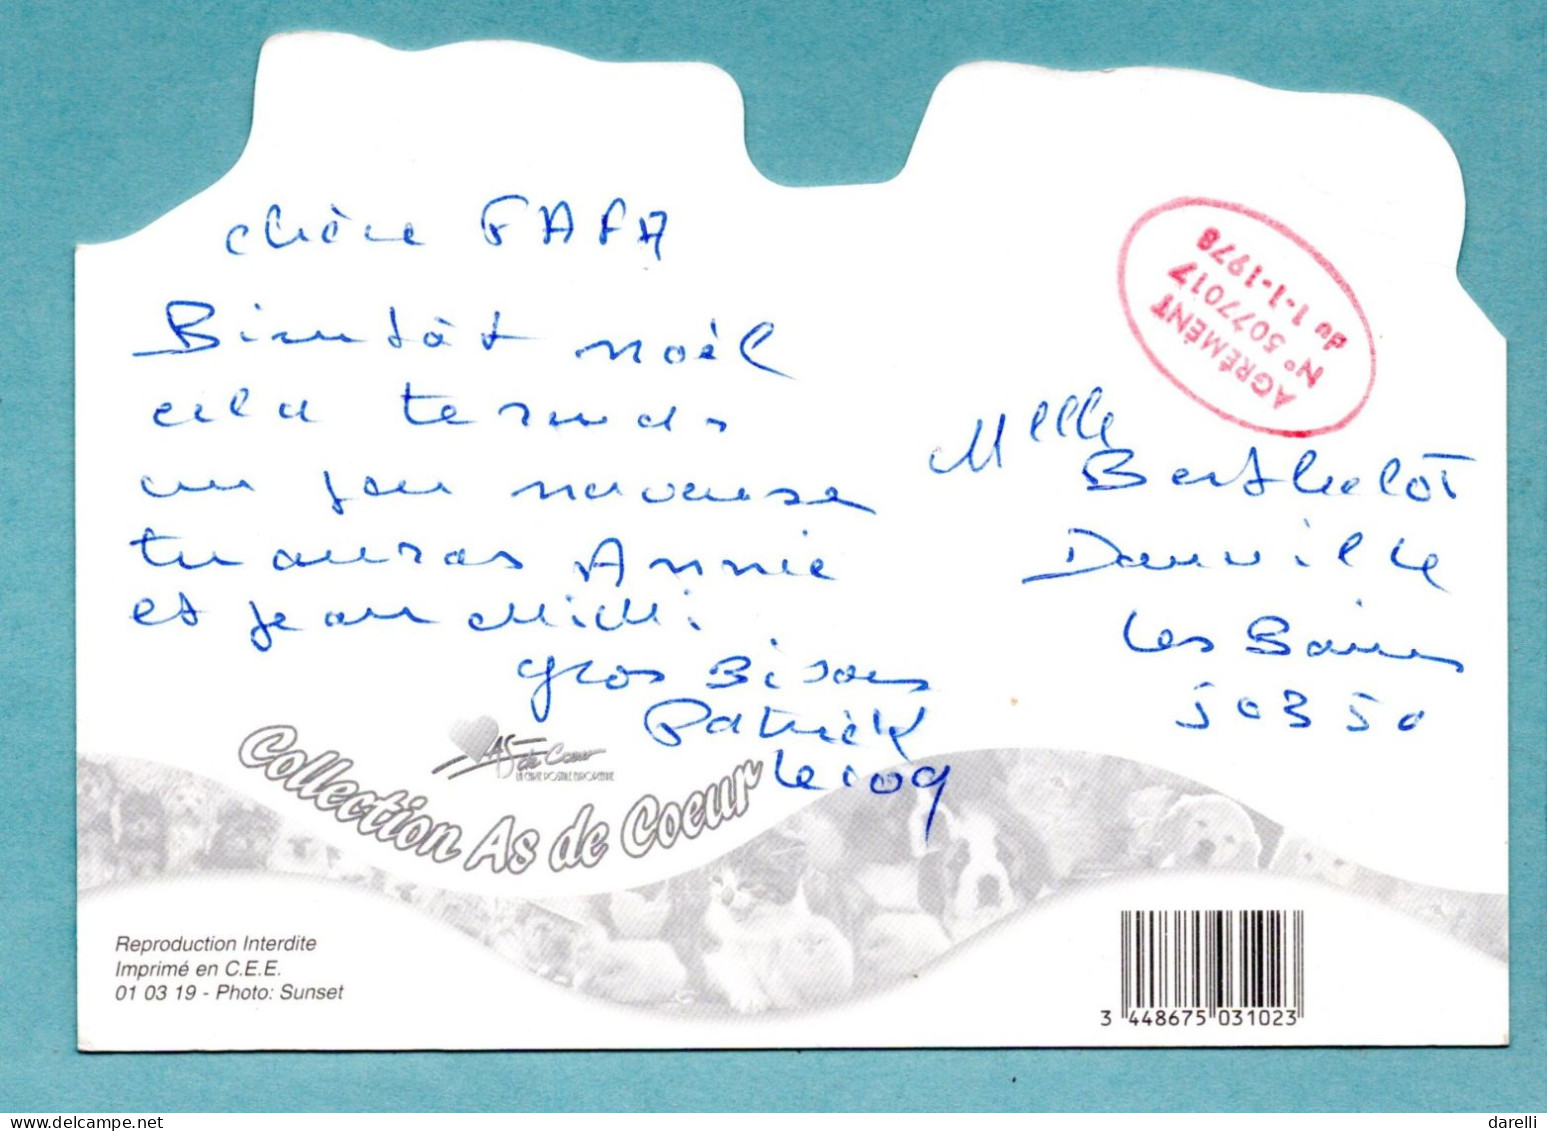 chère FAFA
Bientôt noël
cela te rends
un peu nerveuse
tu auras Annie
et jean Michi.
gros Bisous
Patrick
Lecoq
Melle
Berthelot
Donville
Les Bains
50350
AGRÉMENT
N° 5077017
du 1-1-1978
As de Coeur
LA CARTE POSTALE EUROPÉENNE
Collection As de Coeur
Reproduction Interdite
Imprimé en C.E.E.
01 03 19 - Photo: Sunset
3 448675 031023
darelli